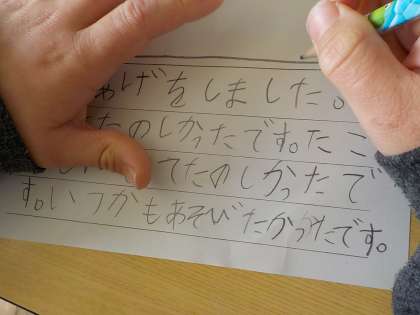 あげをしました。
たのしかったです。たこ
てたのしかったで
す。いつかもあそびたかったです。